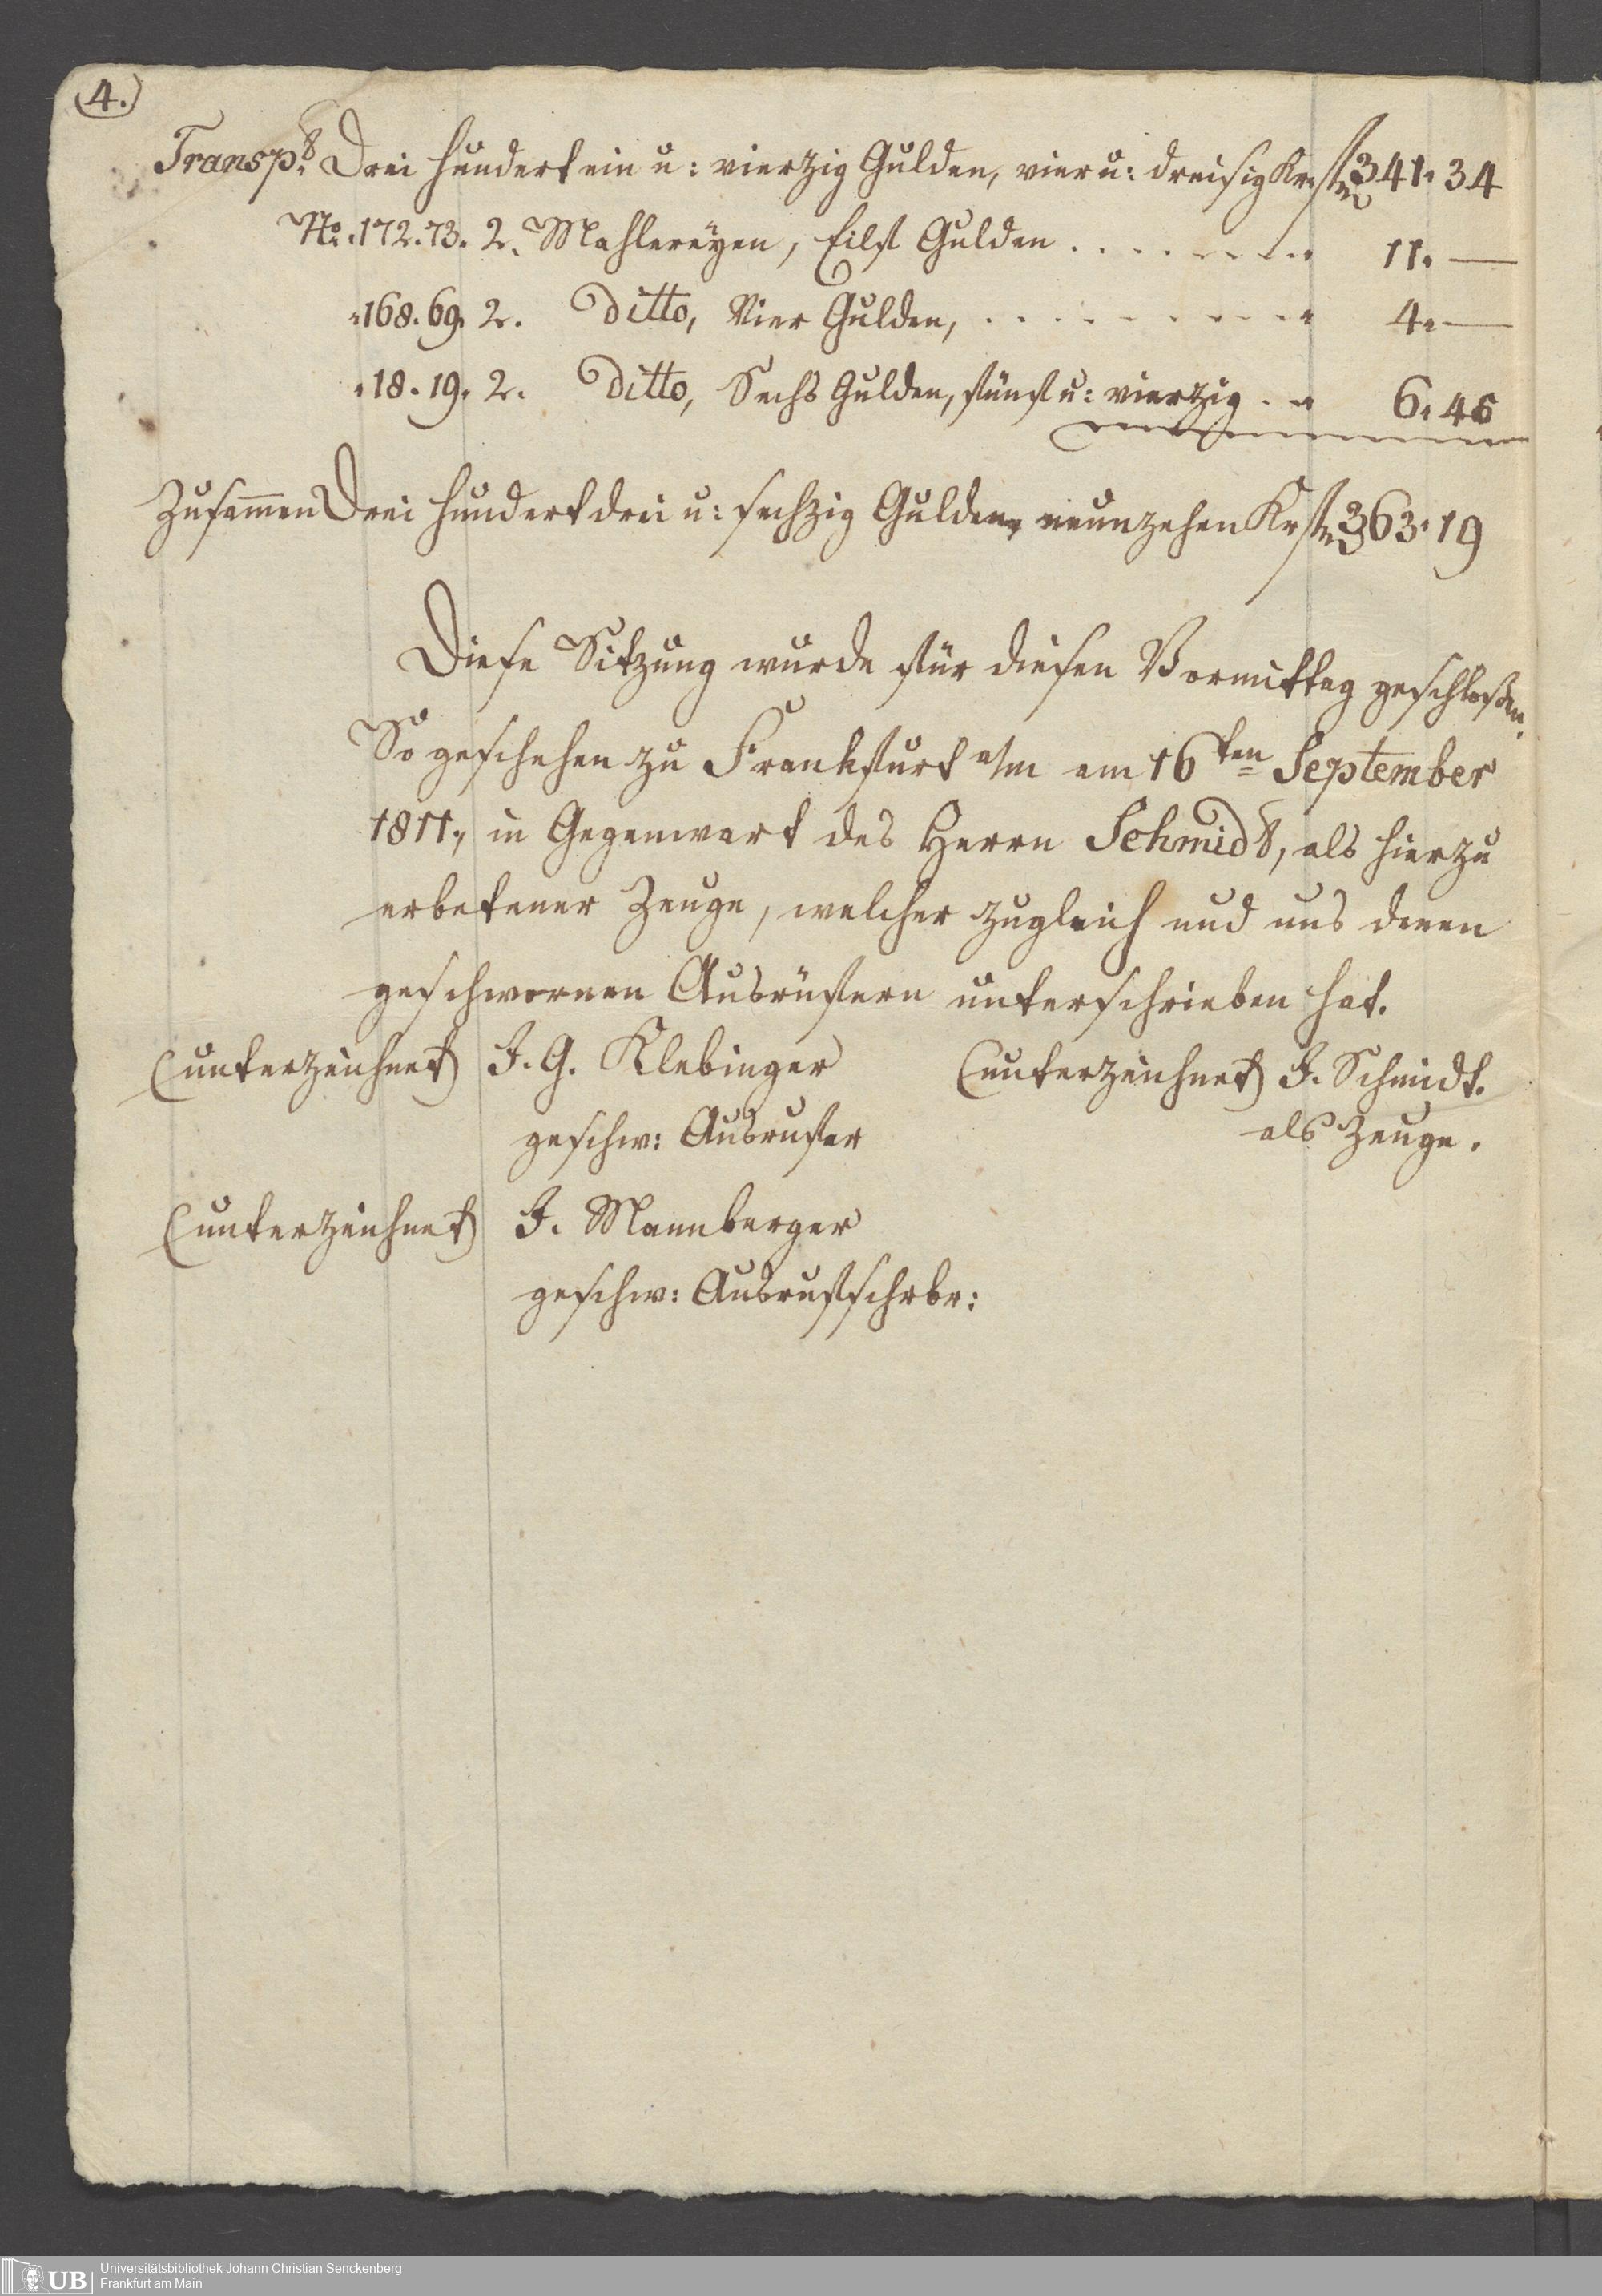 4.
Transpt. Drei hundert ein u: vierzig Gulden, vier u: dreisig Kr. fl 341. 34
No. 172. 73. 2. Mahlereyen, Eilf Gulden . . . . . . . 11. —
" 168. 69. 2. Ditto, Vier Gulden, . . . . . . . . . 4. —
" 18. 19. 2. Ditto, Sechs Gulden, fünf u: vierzig . . 6. 45
Zusam̅en Drei hundert drei u: sechzig Gulden, neunzehen Kr fl 363. 19
Diese Sitzung wurde für diesen Vormittag geschloßen.
So geschehen zu Frankfurt a/m am 16ten September
1811., in Gegenwart des Herrn Schmidt, als hierzu
erbetener Zeuge, welcher zugleich und uns denen
geschwornen Ausrüfern unterschrieben hat.
(unterzeichnet) J. G. Klebinger (unterzeichnet) J. Schmidt.
geschw: Ausrufer als Zeuge.
(unterzeichnet) J. Mannberger
geschw: Ausrufschrbr:
UB Universitätsbibliothek Johann Christian Senckenberg
Frankfurt am Main